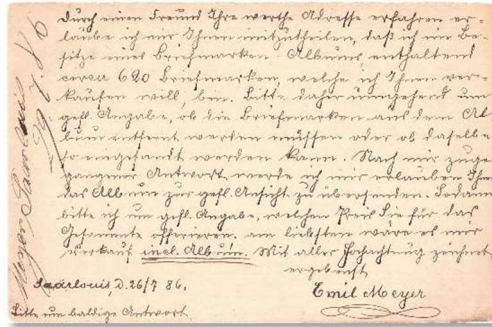 Durch einen Freund Ihre werthe Adresse erfahren er-
laube ich mir Ihnen mitzutheilen, daß ich im Be-
sitze eines Briefmarken-Albums enthaltend
circa 620 Briefmarken, welche ich Ihnen ver-
kaufen will, bin. Bitte daher umgehend um
gefl. Angabe, ob die Briefmarken aus dem Al
bum entfernt werden müssen oder ob dasselbe
so eingesandt werden kann. Nach mir zuge
gangener Antwort werde ich mir erlauben Ihnen
das Album zur gefl. Ansicht zu übersenden. Sodann
bitte ich um gefl. Angabe, welchen Preis Sie für das
Gesammte offeriren, am liebsten wäre es mir
Verkauf incl. Album. Mit aller Hochachtung zeichnet
ergebenst
Saarlouis, d. 26/7 86.
Emil Meyer
Bitte um baldige Antwort.
Meyer Saarlouis
29.7.86